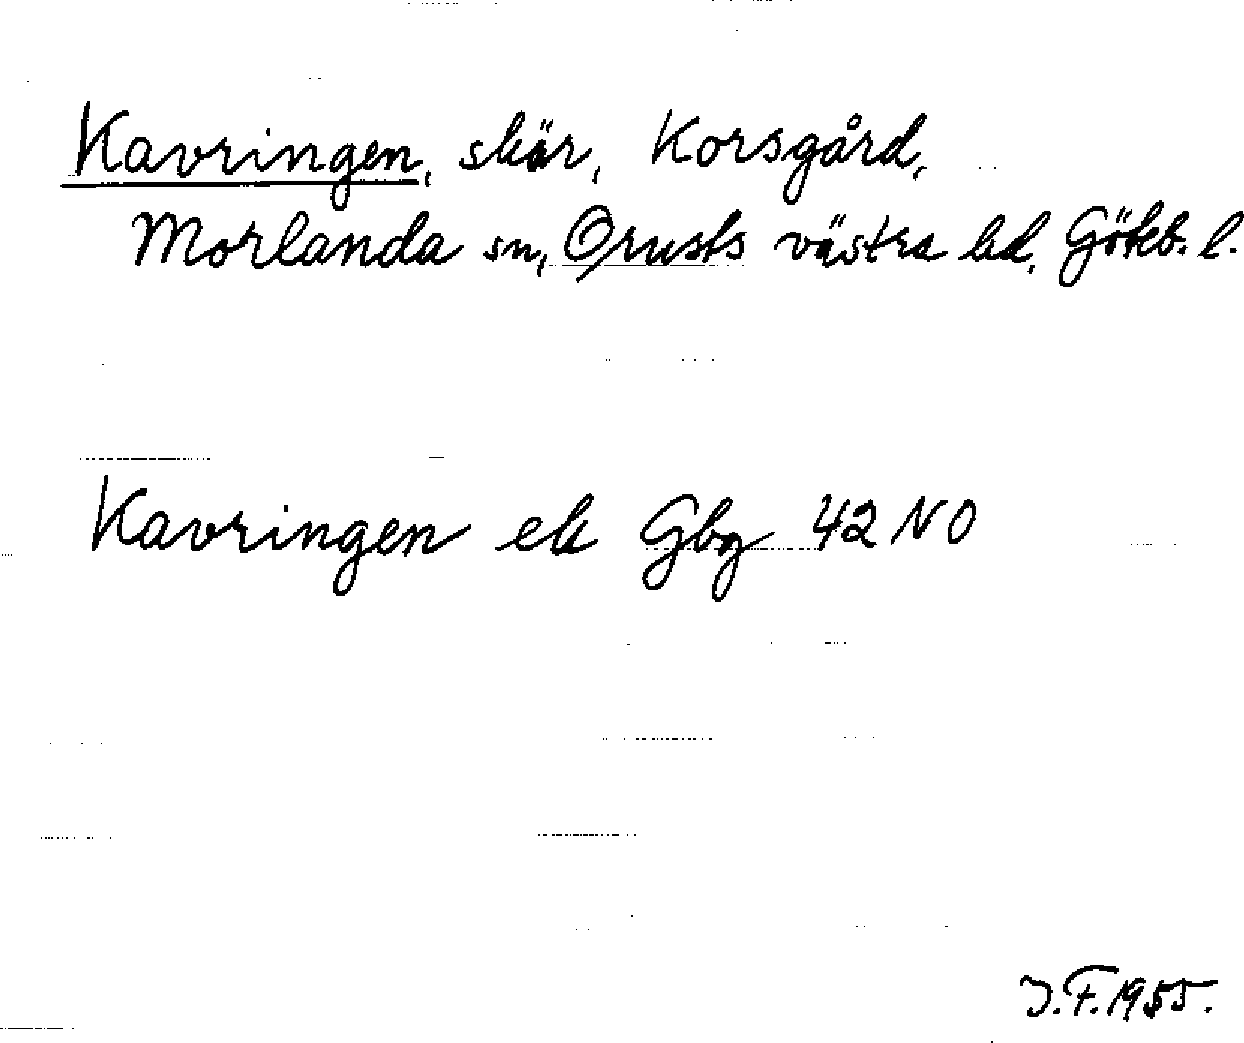 Kavringen, skär, Korsgård,
Morlanda sn, Orusts västra hd, Göteb. l.
Kavringen ek Gbg 42 NO
J.F. 1955.